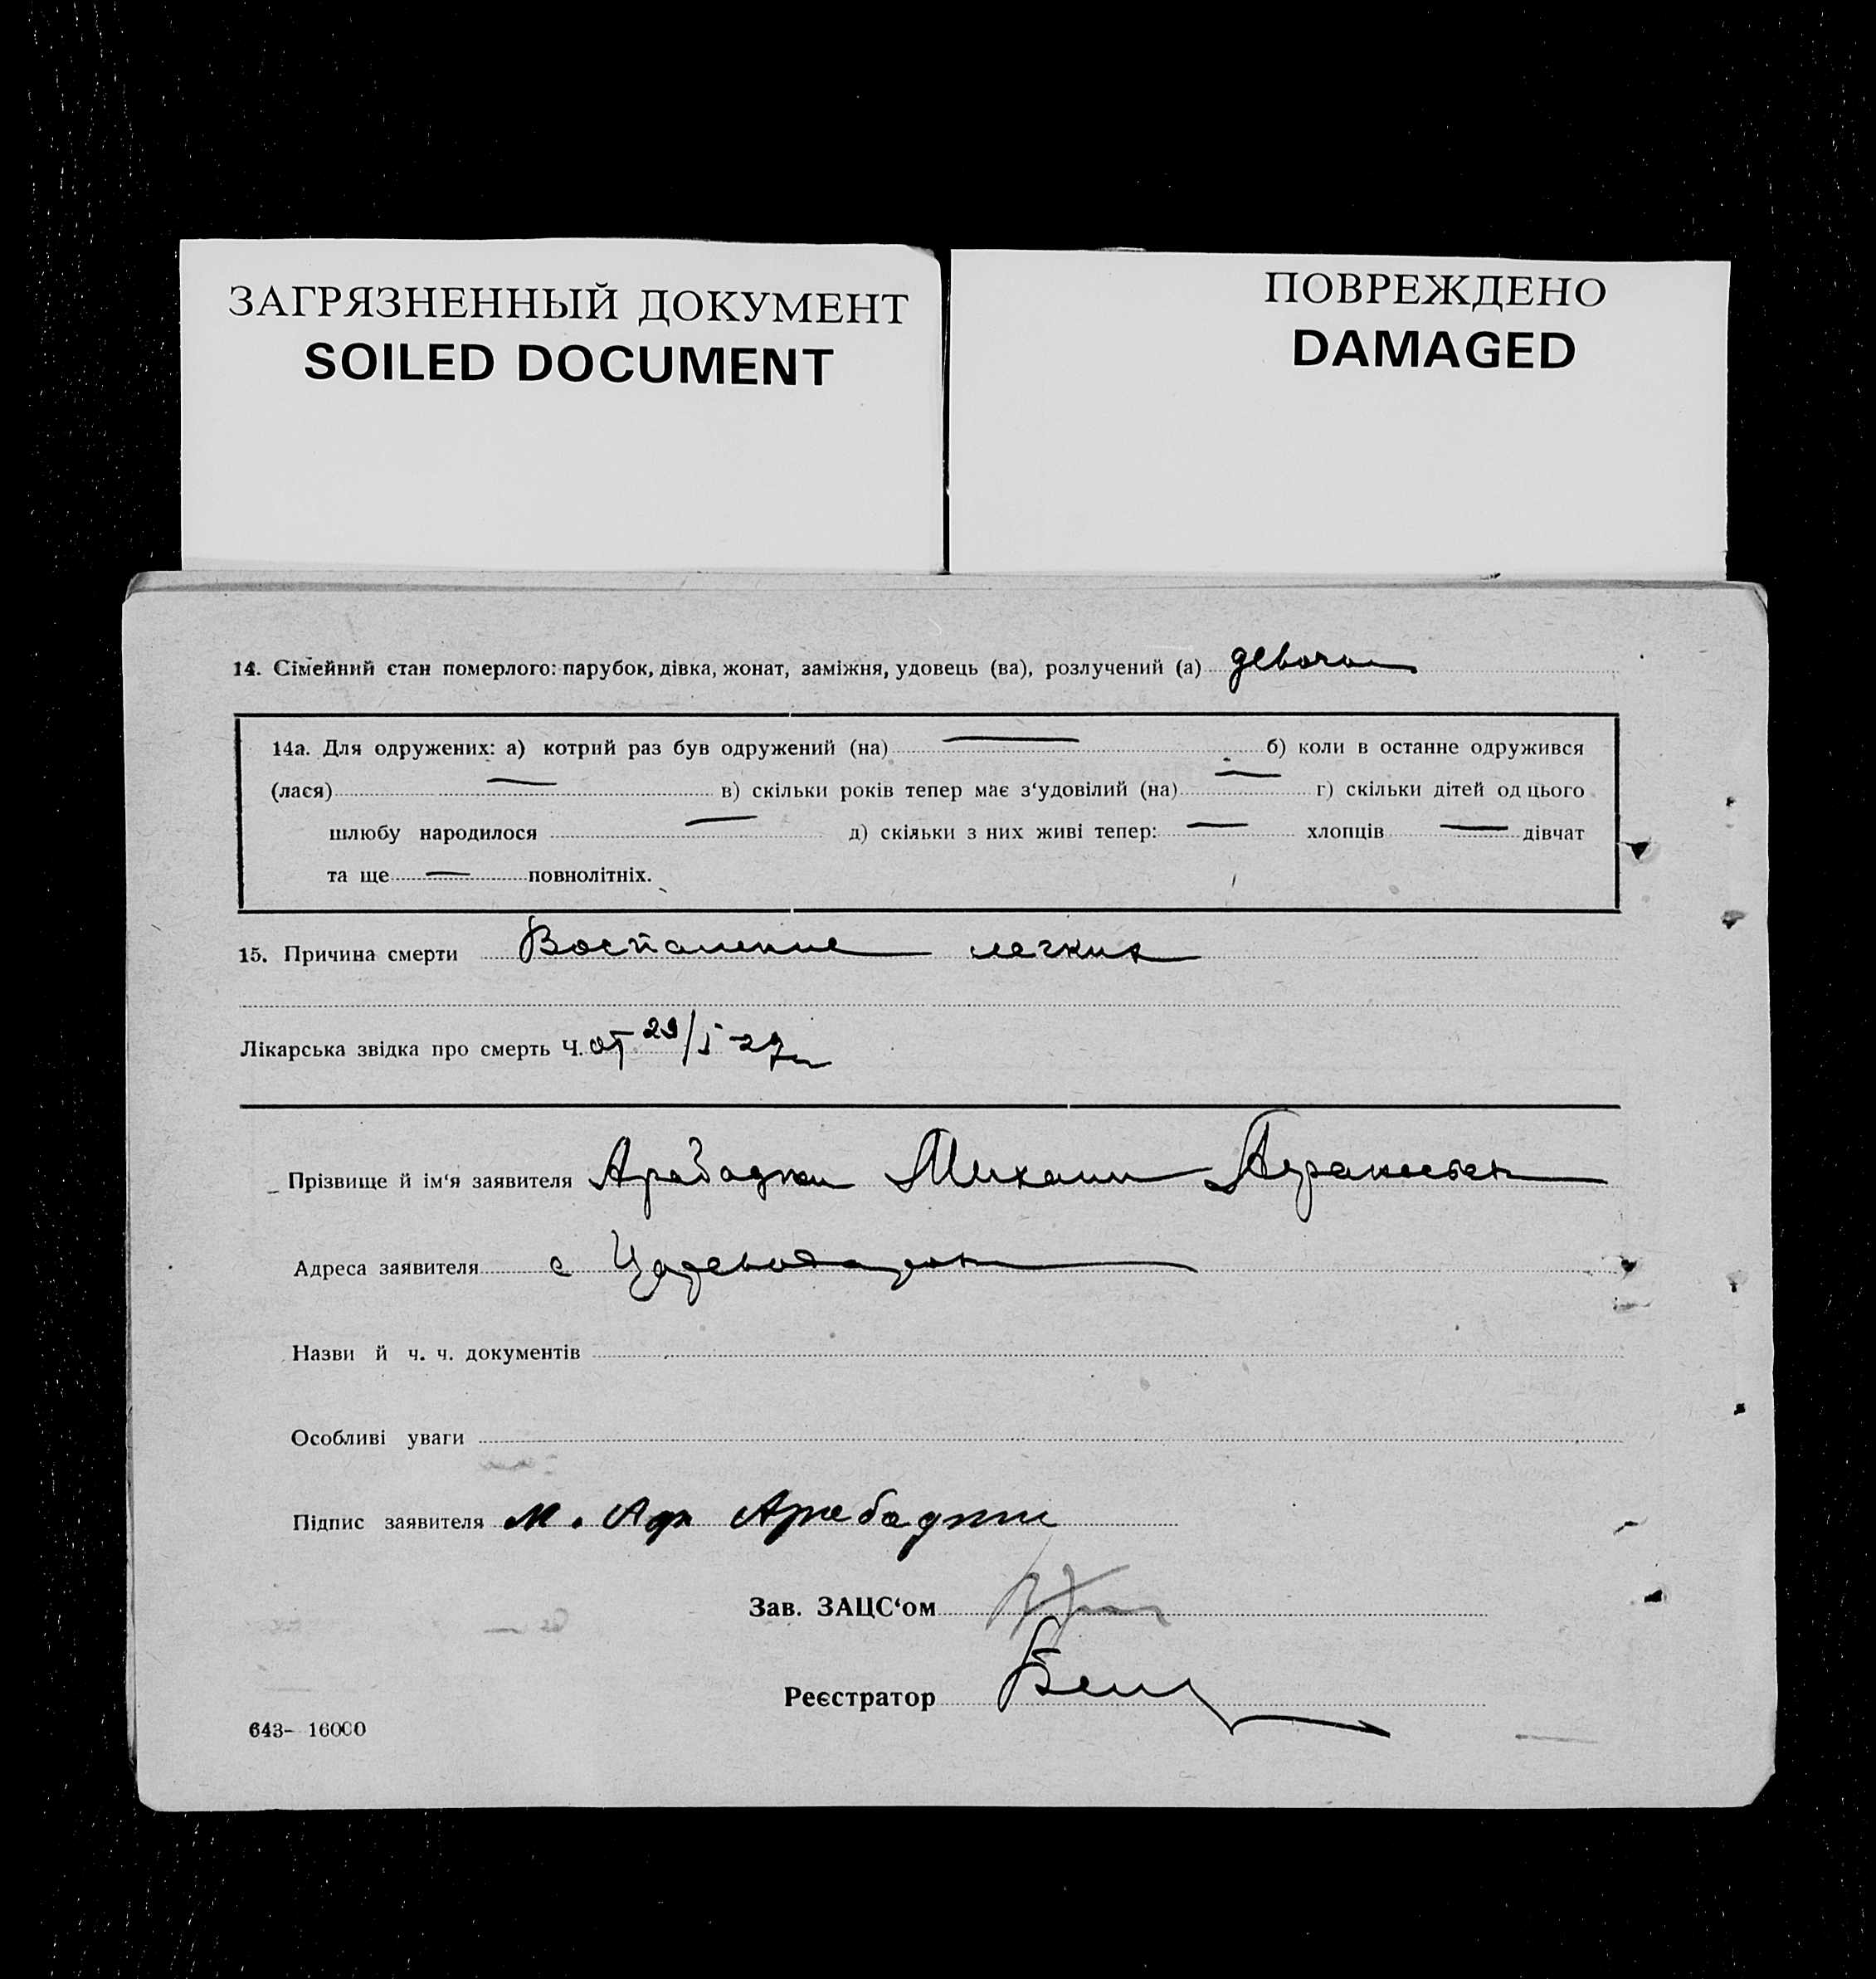 ЗАГРЯЗНЕННЫЙ ДОКУМЕНТ
SOILED DOCUMENT
ПОВРЕЖДЕНО
DAMAGED
14. Сімейний стан померлого: парубок, дівка, жонат, заміжня, удовець (ва), розлучений (а)
14а. Для одружених: а) котрий раз був одружений (на) б) коли в останне одружився
(лася) в) скільки років тепер має з‘удовілий (на) г) скільки дітей од цього
шлюбу народилося д) скільки з них живі тепер: хлопців дівчат
та ще повнолітніх.
15. Причина смерти Воспаление легких
Лікарська звідка про смерть Ч. от 29/I-27г
Прізвище й ім‘я заявителя Арабаджи Михаил
Адреса заявителя с
Назви й ч. ч. документів
Особливі уваги
Підпис заявителя М. Арабаджи
Зав. ЗАЦС‘ом
Реєстратор
643- 16000